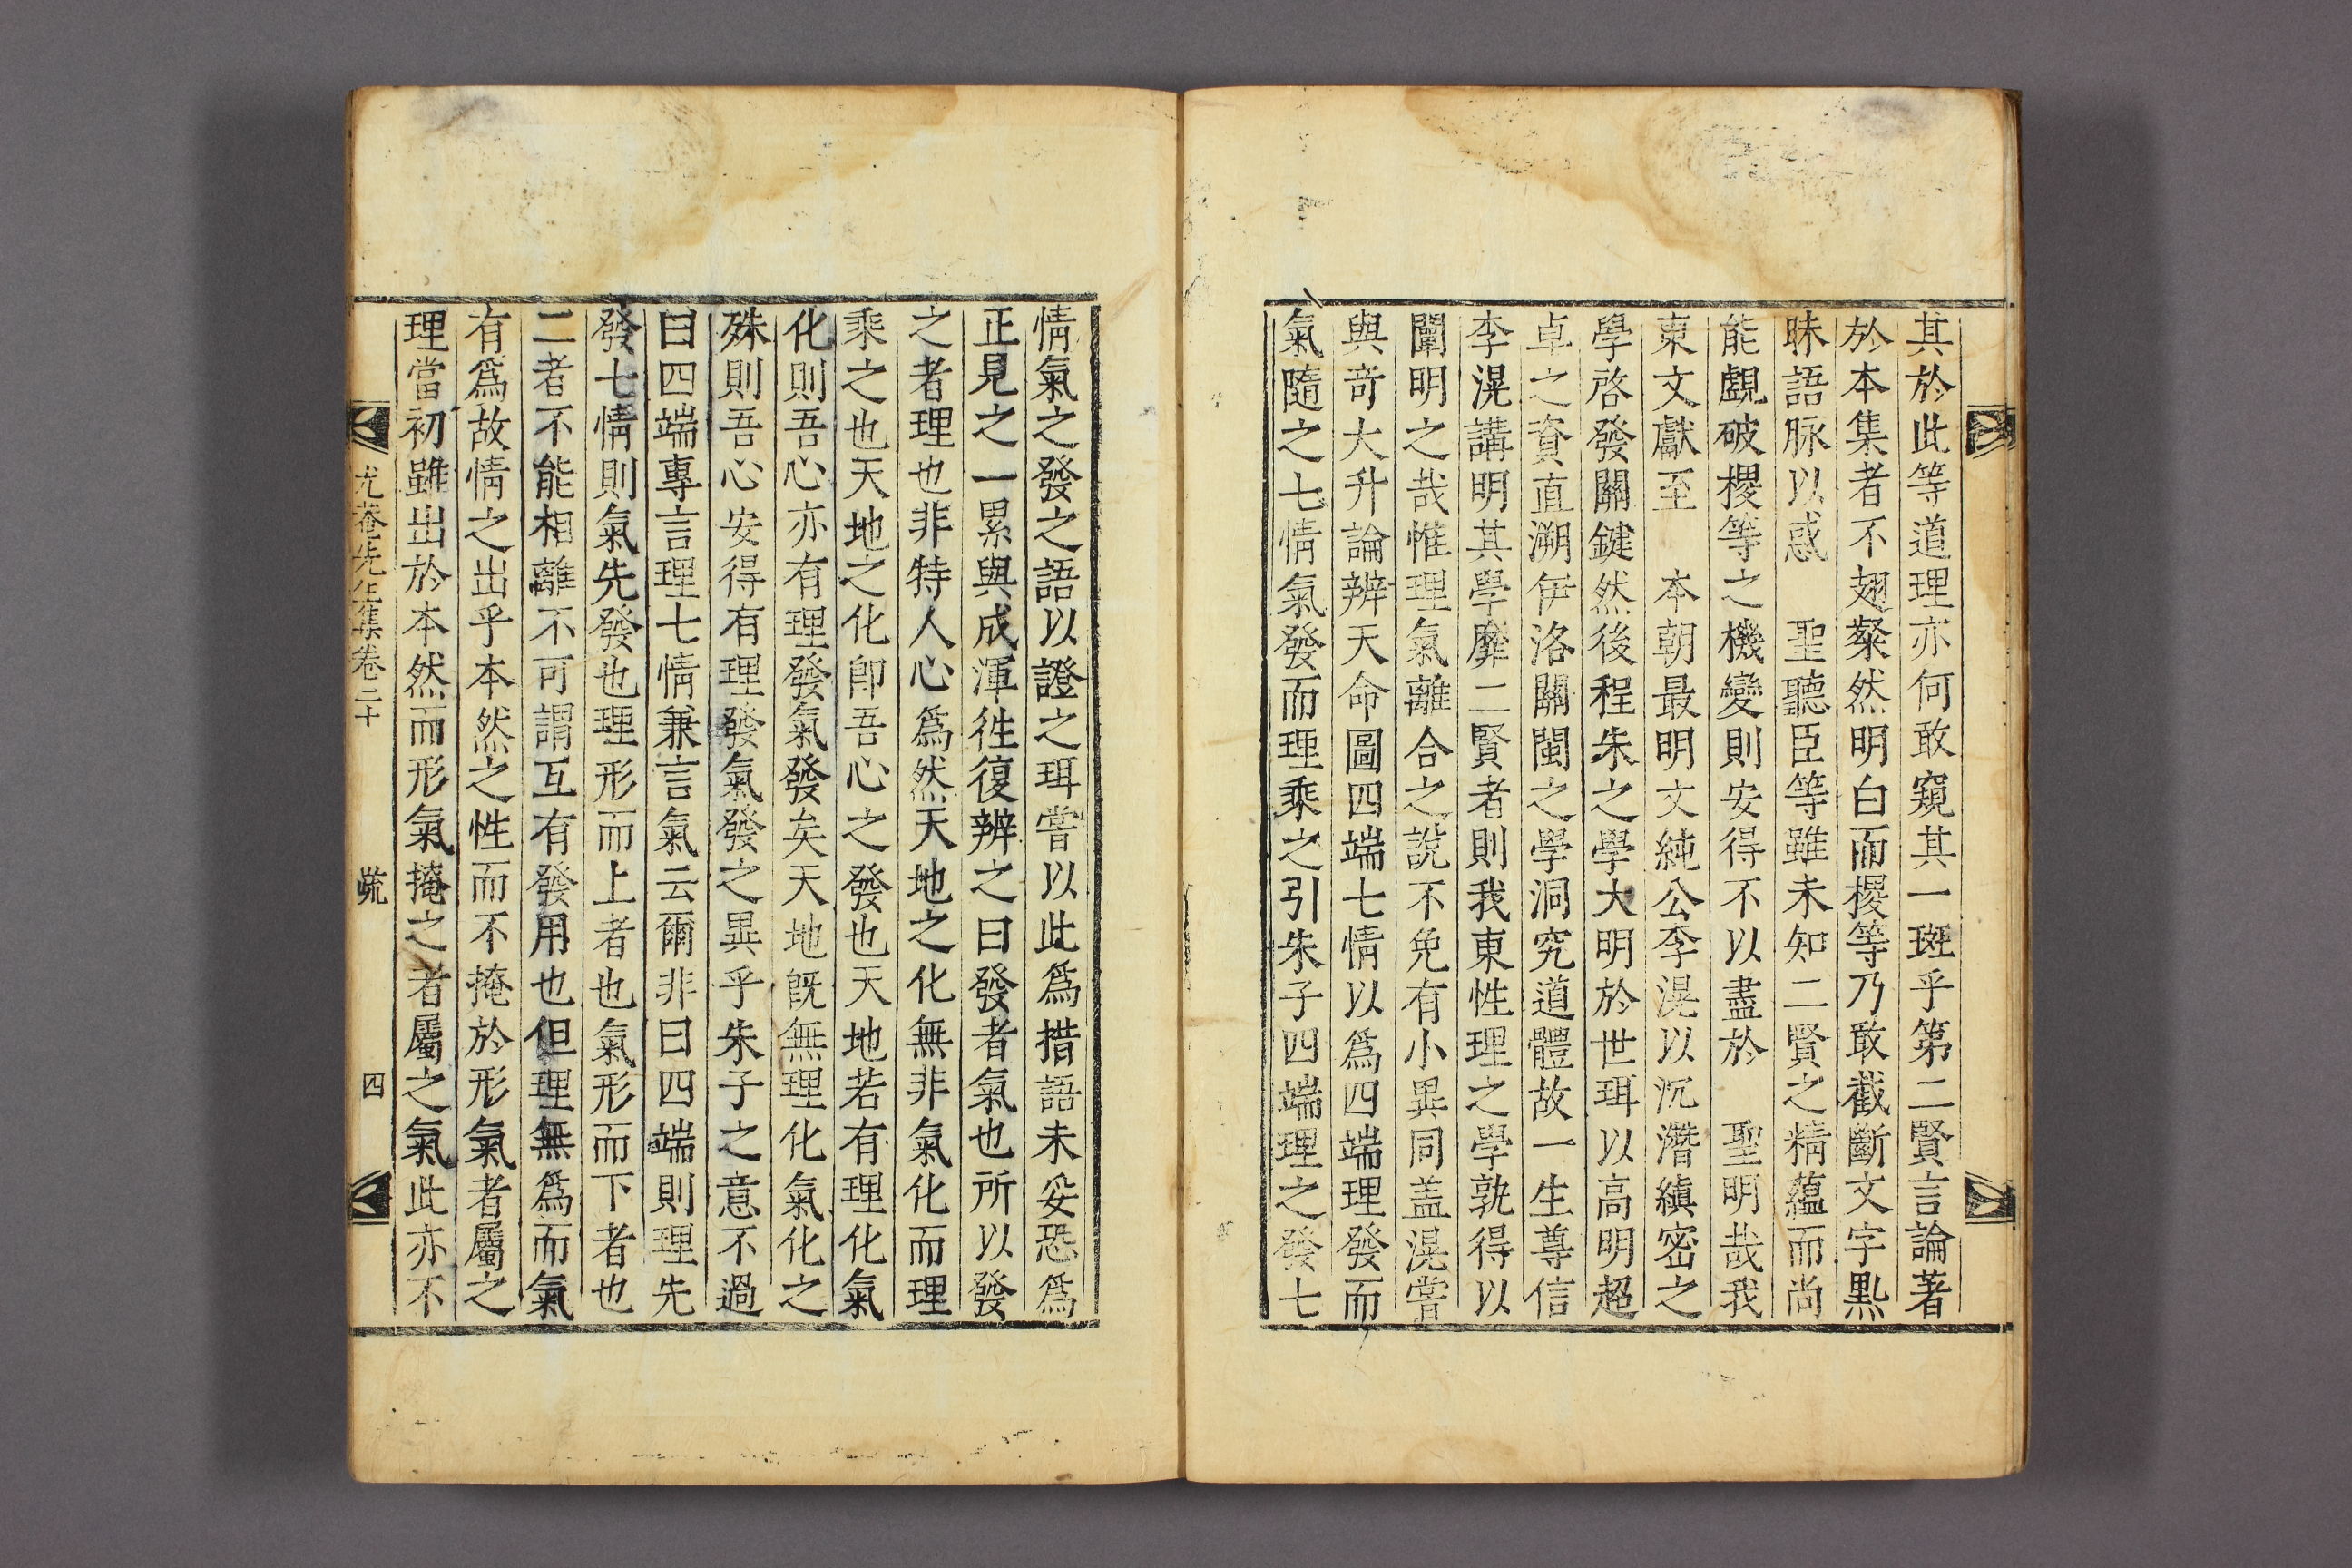 其於此等道理亦何敢窺其一斑乎第二賢言論著
於本集者不翅粲然明白而㮨等乃敢截斷文字點
昧語脉以惑　聖聽臣等雖未知二賢之精蘊而尚
能覷破㮨等之機變則安得不以盡於　聖明哉我
東文獻至　本朝最明文純公李滉以沉潛縝密之
學啓發關鍵然後程朱之學大明於世珥以高明超
卓之資直溯伊洛關閩之學洞究道體故一生尊信
李滉講明其學靡二賢者則我東性理之學孰得以
闡明之哉惟理氣離合之說不免有小異同盖滉嘗
與奇大升論辨天命圖四端七情以爲四端理發而
氣隨之七情氣發而理乘之引朱子四端理之發七
情氣之發之語以證之珥嘗以此爲措語未妥恐爲
正見之一累與成渾徃復辨之曰發者氣也所以發
之者理也非特人心爲然天地之化無非氣化而理
乘之也天地之化卽吾心之發也天地若有理化氣
化則吾心亦有理發氣發矣天地旣無理化氣化之
殊則吾心安得有理發氣發之異乎朱子之意不過
曰四端專言理七情兼言氣云爾非曰四端則理先
發七情則氣先發也理形而上者也氣形而下者也
二者不能相離不可謂互有發用也但理無爲而氣
有爲故情之出乎本然之性而不掩於形氣者屬之
理當初雖出於本然而形氣掩之者屬之氣此亦不
先生集卷二十　疏　四